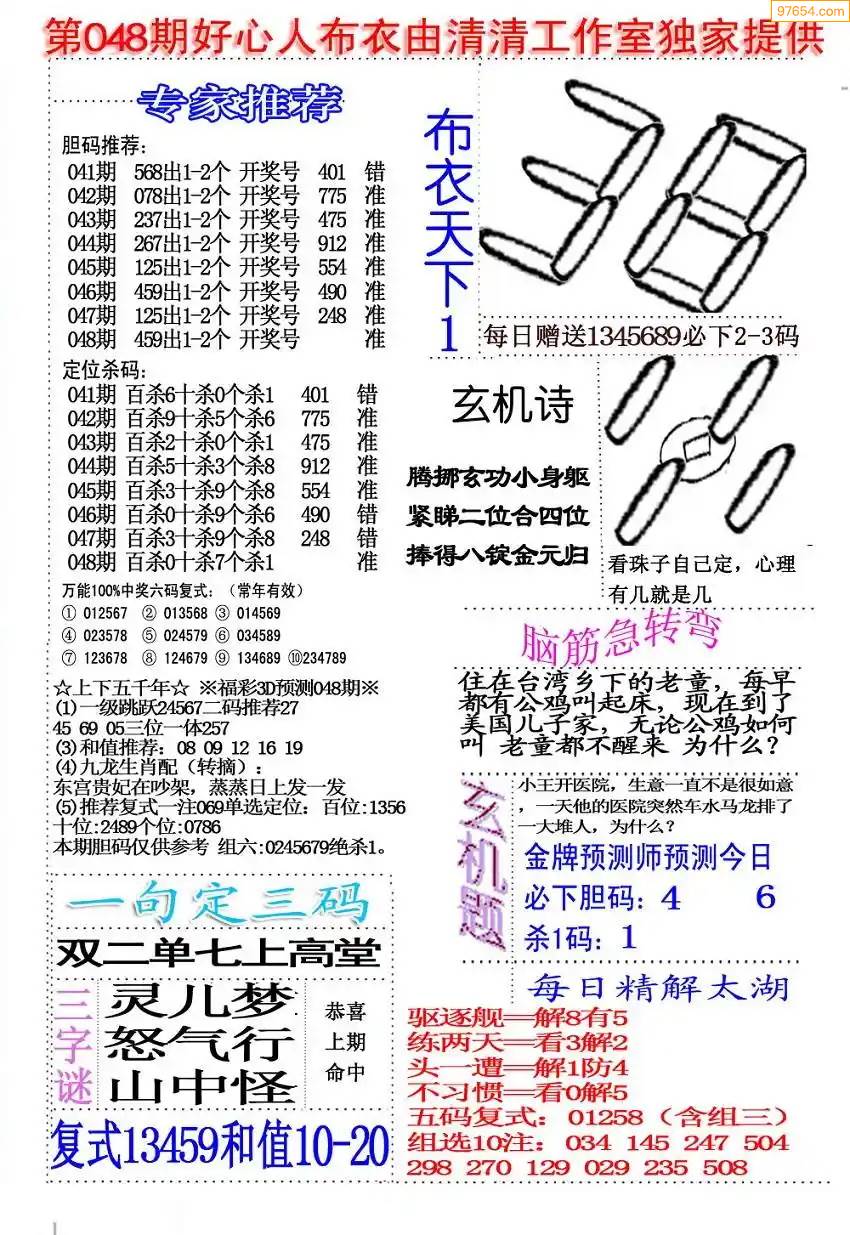 97654.com
第048期好心人布衣由清清工作室独家提供
专家推荐
胆码推荐:
041期 568出1-2个 开奖号 401 错
042期 078出1-2个 开奖号 775 准
043期 237出1-2个 开奖号 475 准
044期 267出1-2个 开奖号 912 准
045期 125出1-2个 开奖号 554 准
046期 459出1-2个 开奖号 490 准
047期 125出1-2个 开奖号 248 准
048期 459出1-2个 开奖号 准
定位杀码:
041期 百杀6十杀0个杀1 401 错
042期 百杀9十杀5个杀6 775 准
043期 百杀2十杀0个杀1 475 准
044期 百杀5十杀3个杀8 912 准
045期 百杀3十杀9个杀8 554 准
046期 百杀0十杀9个杀6 490 错
047期 百杀3十杀9个杀8 248 错
048期 百杀0十杀7个杀1 准
万能100%中奖六码复式:(常年有效)
① 012567 ② 013568 ③ 014569
④ 023578 ⑤ 024579 ⑥ 034589
⑦ 123678 ⑧ 124679 ⑨ 134689 ⑩234789
☆上下五千年☆ ※福彩3D预测048期※
(1)一级跳跃24567二码推荐27
45 69 05三位一体257
(3)和值推荐:08 09 12 16 19
(4)九龙生肖配(转摘):
东宫贵妃在吵架,蒸蒸日上发一发
(5)推荐复式一注069单选定位:百位:1356
十位:2489个位:0786
本期胆码仅供参考 组六:0245679绝杀1。
一句定三码
双二单七上高堂
三字谜
灵儿梦
怒气行
山中怪
恭喜
上期
命中
复式13459和值10-20
布衣天下1
38
每日赠送1345689必下2-3码
玄机诗
腾挪玄功小身躯
紧睇二位合四位
捧得八锭金元归
看珠子自己定，心理
有几就是几
脑筋急转弯
住在台湾乡下的老童，每早
都有公鸡叫起床，现在到了
美国儿子家，无论公鸡如何
叫 老童都不醒来 为什么？
玄机题
小王开医院，生意一直不是很如意
，一天他的医院突然车水马龙排了
一大堆人，为什么？
金牌预测师预测今日
必下胆码：4 6
杀1码：1
每日精解太湖
驱逐舰══解8有5
练两天══看3解2
头一遭══解1防4
不习惯══看0解5
五码复式：01258（含组三）
组选10注：034 145 247 504
298 270 129 029 235 508